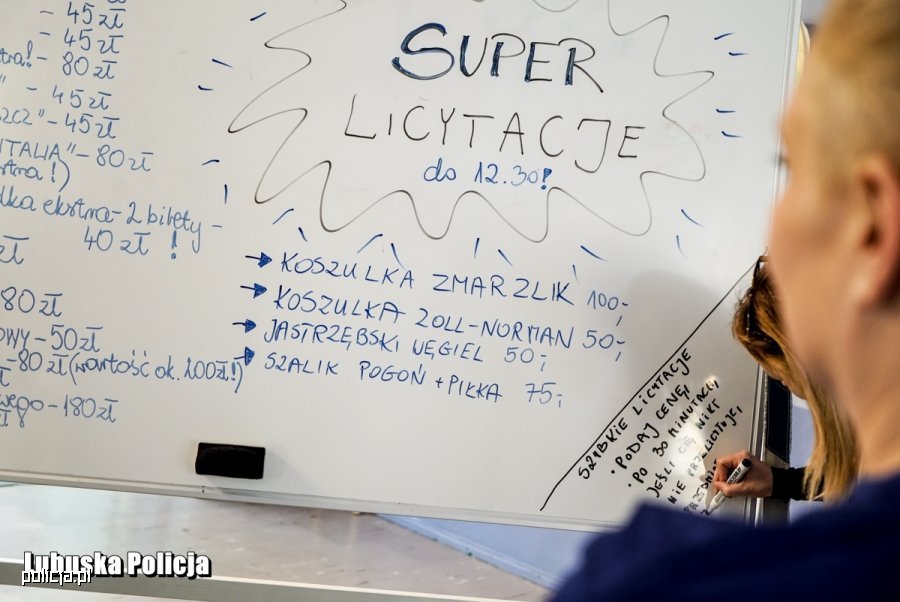 - 45 zł
- 45 zł
- 80 zł
- 45 zł
- 45 zł
ITALIA" - 80 zł
ekstra - 2 bilety -
40 zł !
zł
80 zł
- 50 zł
- 80 zł (wartość ok. 200 zł!)
zł
- 180 zł
SUPER
LICYTACJE
do 12.30!
→ KOSZULKA ZMARZLIK 100,-
→ KOSZULKA ZOLL-NORMAN 50,-
→ JASTRZĘBSKI WĘGIEL 50,-
→ SZALIK POGOŃ + PIŁKA 75,-
SZYBKIE LICYTACJE
• PODAJ CENĘ,
• PO 30 MINUTACH,
JEŚLI CIĘ NIKT
NIE PRZELICYTUJE,
Lubuska Policja
policja.pl